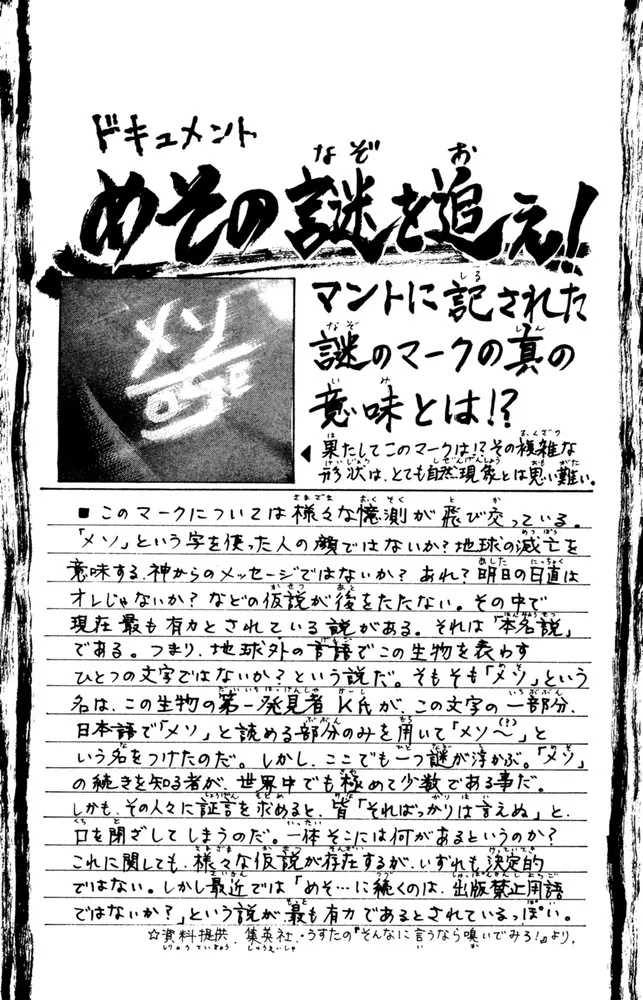 ドキュメント
めその謎を追え!
マントに記された
謎のマークの真の
意味とは!?
メソ
◀果たしてこのマークは!?その複雑な
形状は、とても自然現象とは思い難い。
■このマークについては様々な憶測が飛び交っている。
「メソ」という字を使った人の顔ではないか?地球の滅亡を
意味する、神からのメッセージではないか?あれ?明日の日直は
オレじゃないか?などの仮説が後をたたない。その中で
現在最も有力とされている説がある。それは「本名説」
である。つまり、地球外の言語でこの生物を表わす
ひとつの文字ではないか?という説だ。そもそも「メソ」という
名は、この生物の第一発見者K氏が、この文字の一部分、
日本語で「メソ」と読める部分のみを用いて「メソ〜(?)」と
いう名をつけたのだ。しかし、ここでも一つ謎が浮かぶ。「メソ」
の続きを知る者が、世界中でも極めて少数である事だ。
しかも、その人々に証言を求めると、皆「そればっかりは言えぬ」と、
口を閉ざしてしまうのだ。一体そこには何があるというのか?
これに関しても、様々な仮説が存在するが、いずれも決定的
ではない。しかし最近では「めそ…に続くのは、出版禁止用語
ではないか?」という説が最も有力であるとされているっぽい。
☆資料提供、集英社・うすたの『そんなに言うなら嗅いでみろ!』より。